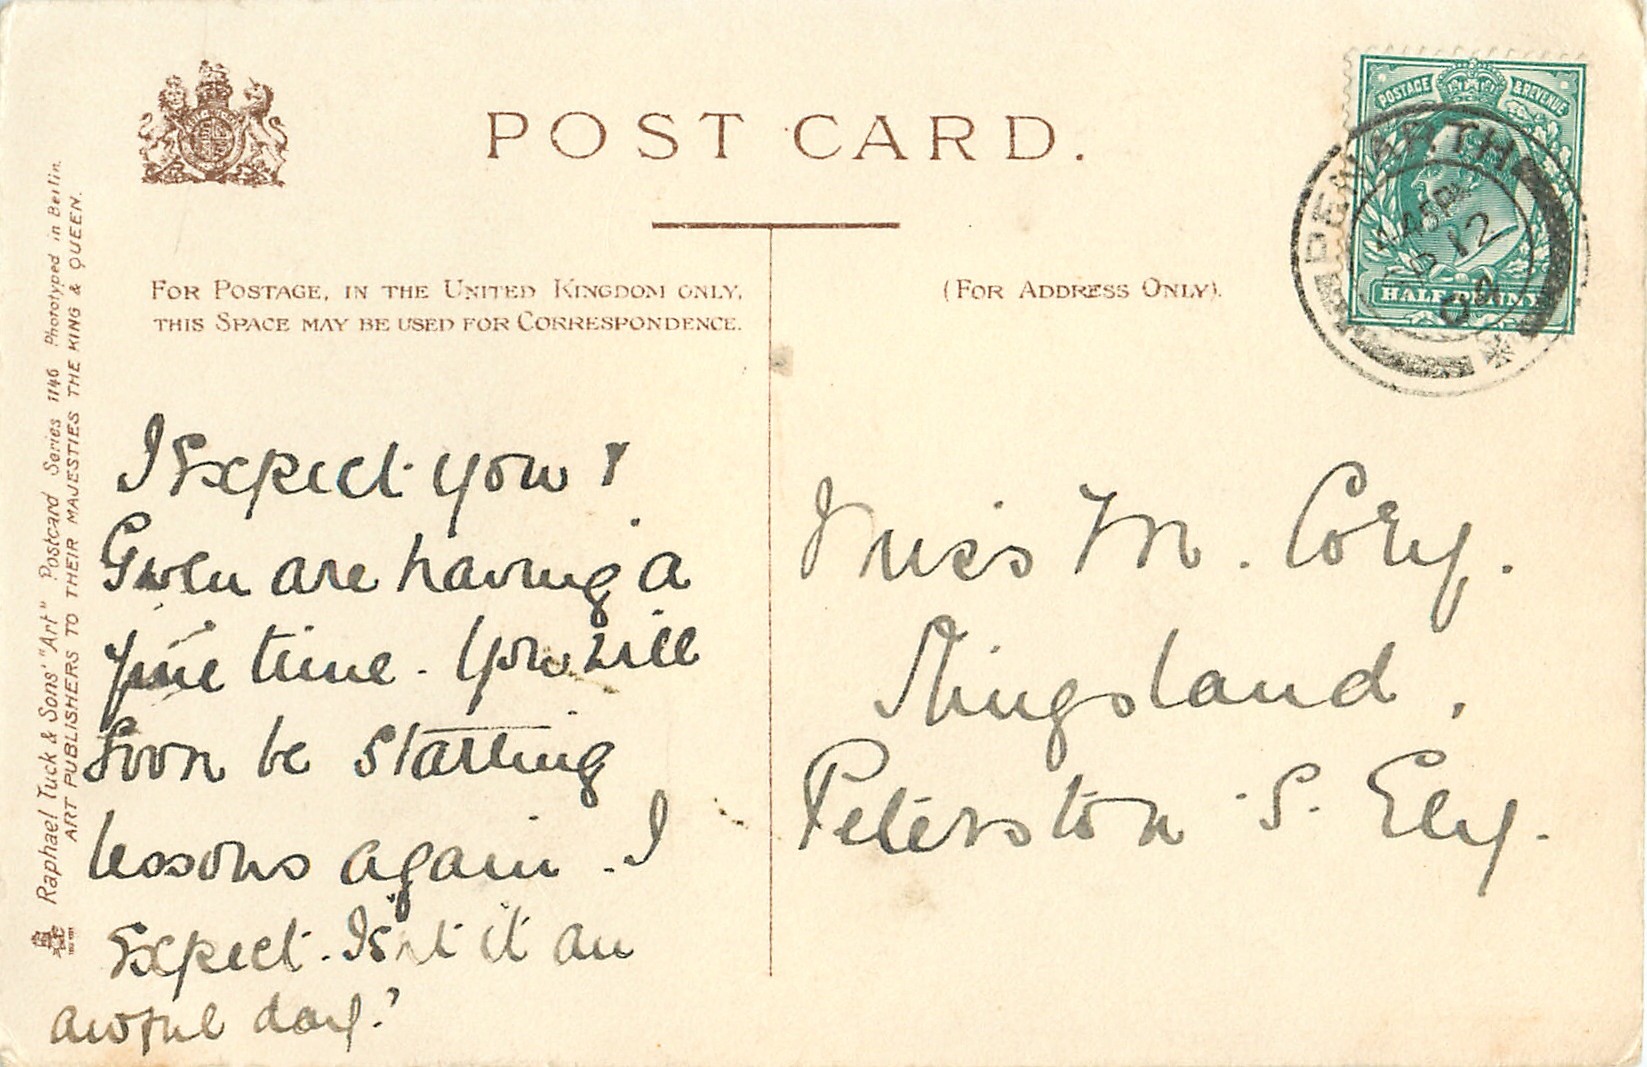 POST CARD.
FOR POSTAGE, IN THE UNITED KINGDOM ONLY,
THIS SPACE MAY BE USED FOR CORRESPONDENCE.
(FOR ADDRESS ONLY).
POSTAGE & REVENUE
HALFPENNY
PENARTH
45PM
12
04
Raphael Tuck & Sons' "Art" Postcard Series 1146 Phototyped in Berlin.
ART PUBLISHERS TO THEIR MAJESTIES THE KING & QUEEN.
I Expect you &
Gwen are having a
fine time. You will
Soon be starting
lessons again. I
Expect. Isn't it an
awful day?
Miss M. Cory.
Kingsland,
Peterston S. Ely.